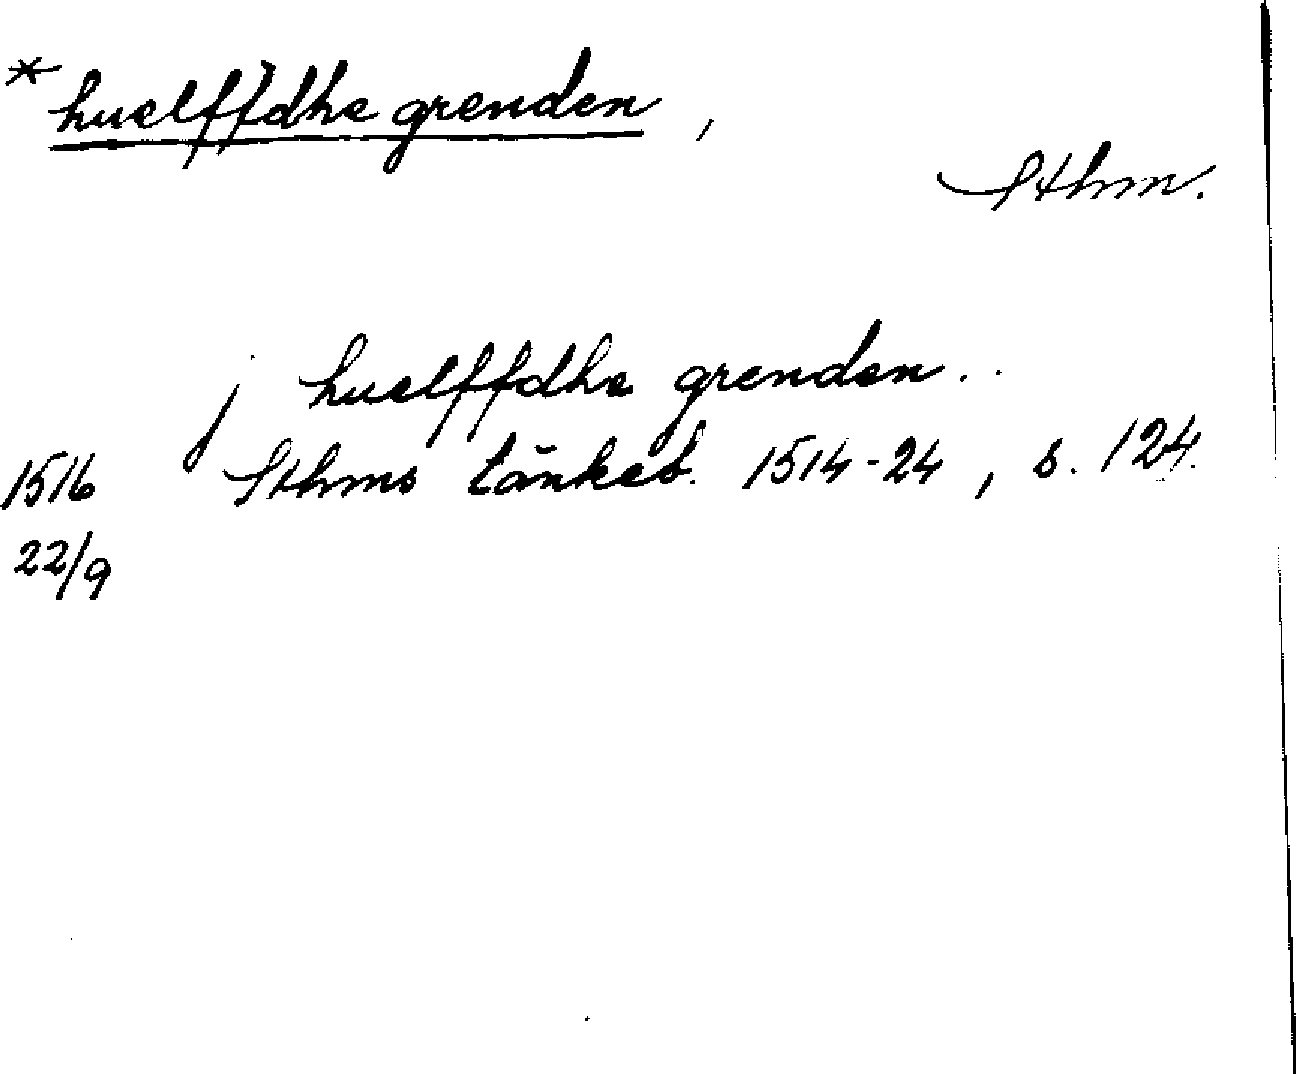 * huelffdhe grenden,
Sthm.
j huelffdhe grenden..
1516 Sthms tänkeb. 1514-24, s. 124.
22/9